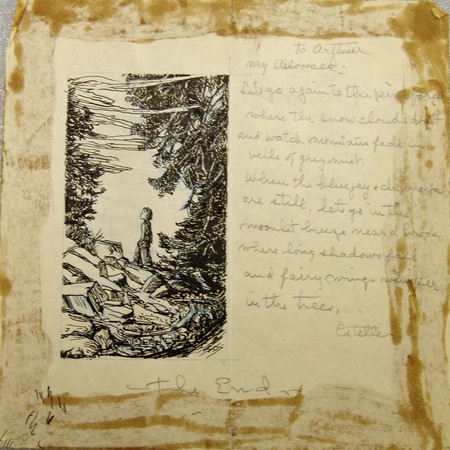 to Arthur
my Beloved -
Let's go again to the
where the snow clouds
and watch mountains fade in
veils of grey mist.
When the bluejay &
are still, let's go in the
moonlit breeze near a
where long shadows fall
and fairy wings
in the trees...
Estelle
The End